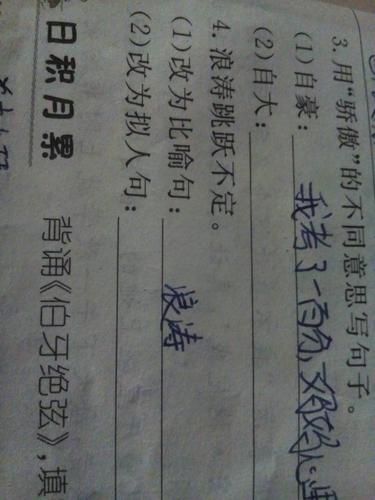 3.用“骄傲”的不同意思写句子。
(1)自豪：我考了一百分，
(2)自大：
4.浪涛跳跃不定。
(1)改为比喻句：浪涛
(2)改为拟人句：
日积月累
背诵《伯牙绝弦》，填